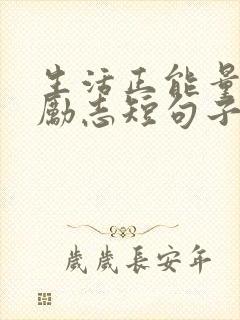 生活正能量
励志短句子
歲歲長安年